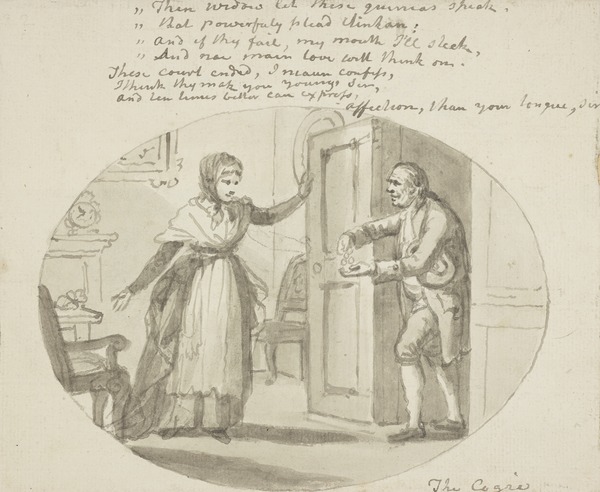 „ Then widow let these guineas speak.
„ that powerfuly plead clinkan;
„ and if thy fail, my mouth I'll steek,
„ And nae mair love will think on.
These court ended, I maun confess,
I think thy mak you young, Sir,
and ten times better can express,
affection, than your tongue, Sir
The Cogie